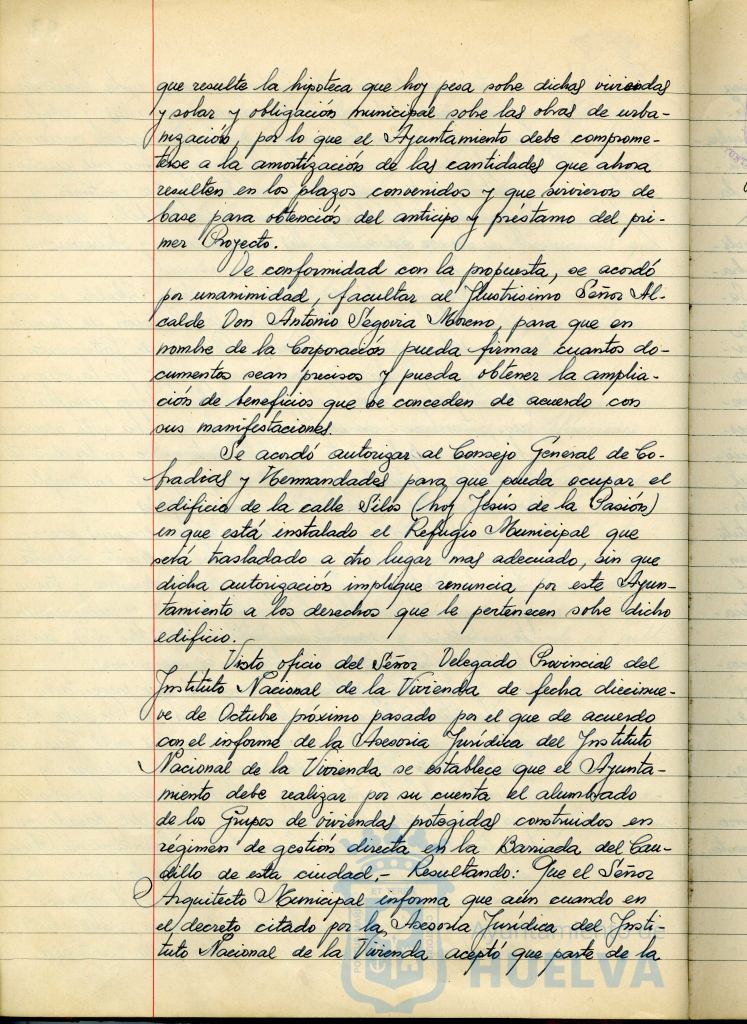 que resulte la hipoteca que hoy pesa sobre dichas viviendas
y solar y obligación municipal sobre las obras de urba-
nización, por lo que el Ayuntamiento debe comprome-
terse a la amortización de las cantidades que ahora
resulten en los plazos convenidos y que sirvieron de
base para obtención del anticipo y préstamo del pri-
mer Proyecto.
De conformidad con la propuesta, se acordó
por unanimidad, facultar al Ilustrisimo Señor Al-
calde Don Antonio Segovia Moreno, para que en
nombre de la Corporación pueda firmar cuantos do-
cumentos sean precisos y pueda obtener la amplia-
ción de beneficios que se conceden de acuerdo con
sus manifestaciones.
Se acordó autorizar al Consejo General de Co-
fradias y Hermandades para que pueda ocupar el
edificio de la calle Silos (hoy Jesús de la Pasión)
en que está instalado el Refugio Municipal que
será trasladado a otro lugar mas adecuado, sin que
dicha autorización implique renuncia por este Ayun-
tamiento a los derechos que le pertenecen sobre dicho
edificio.
Visto oficio del Señor Delegado Provincial del
Instituto Nacional de la Vivienda de fecha diecinue-
ve de Octubre próximo pasado por el que de acuerdo
con el informe de la Asesoria Jurídica del Instituto
Nacional de la Vivienda se establece que el Ayunta-
miento debe realizar por su cuenta el alumbrado
de los Grupos de viviendas protegidas construidos en
régimen de gestión directa en la Barriada del Cau-
dillo de esta ciudad.- Resultando: Que el Señor
Arquitecto Municipal informa que aún cuando en
el decreto citado por la Asesoria Jurídica del Insti-
tuto Nacional de la Vivienda aceptó que parte de la
Ayuntamiento de
HUELVA